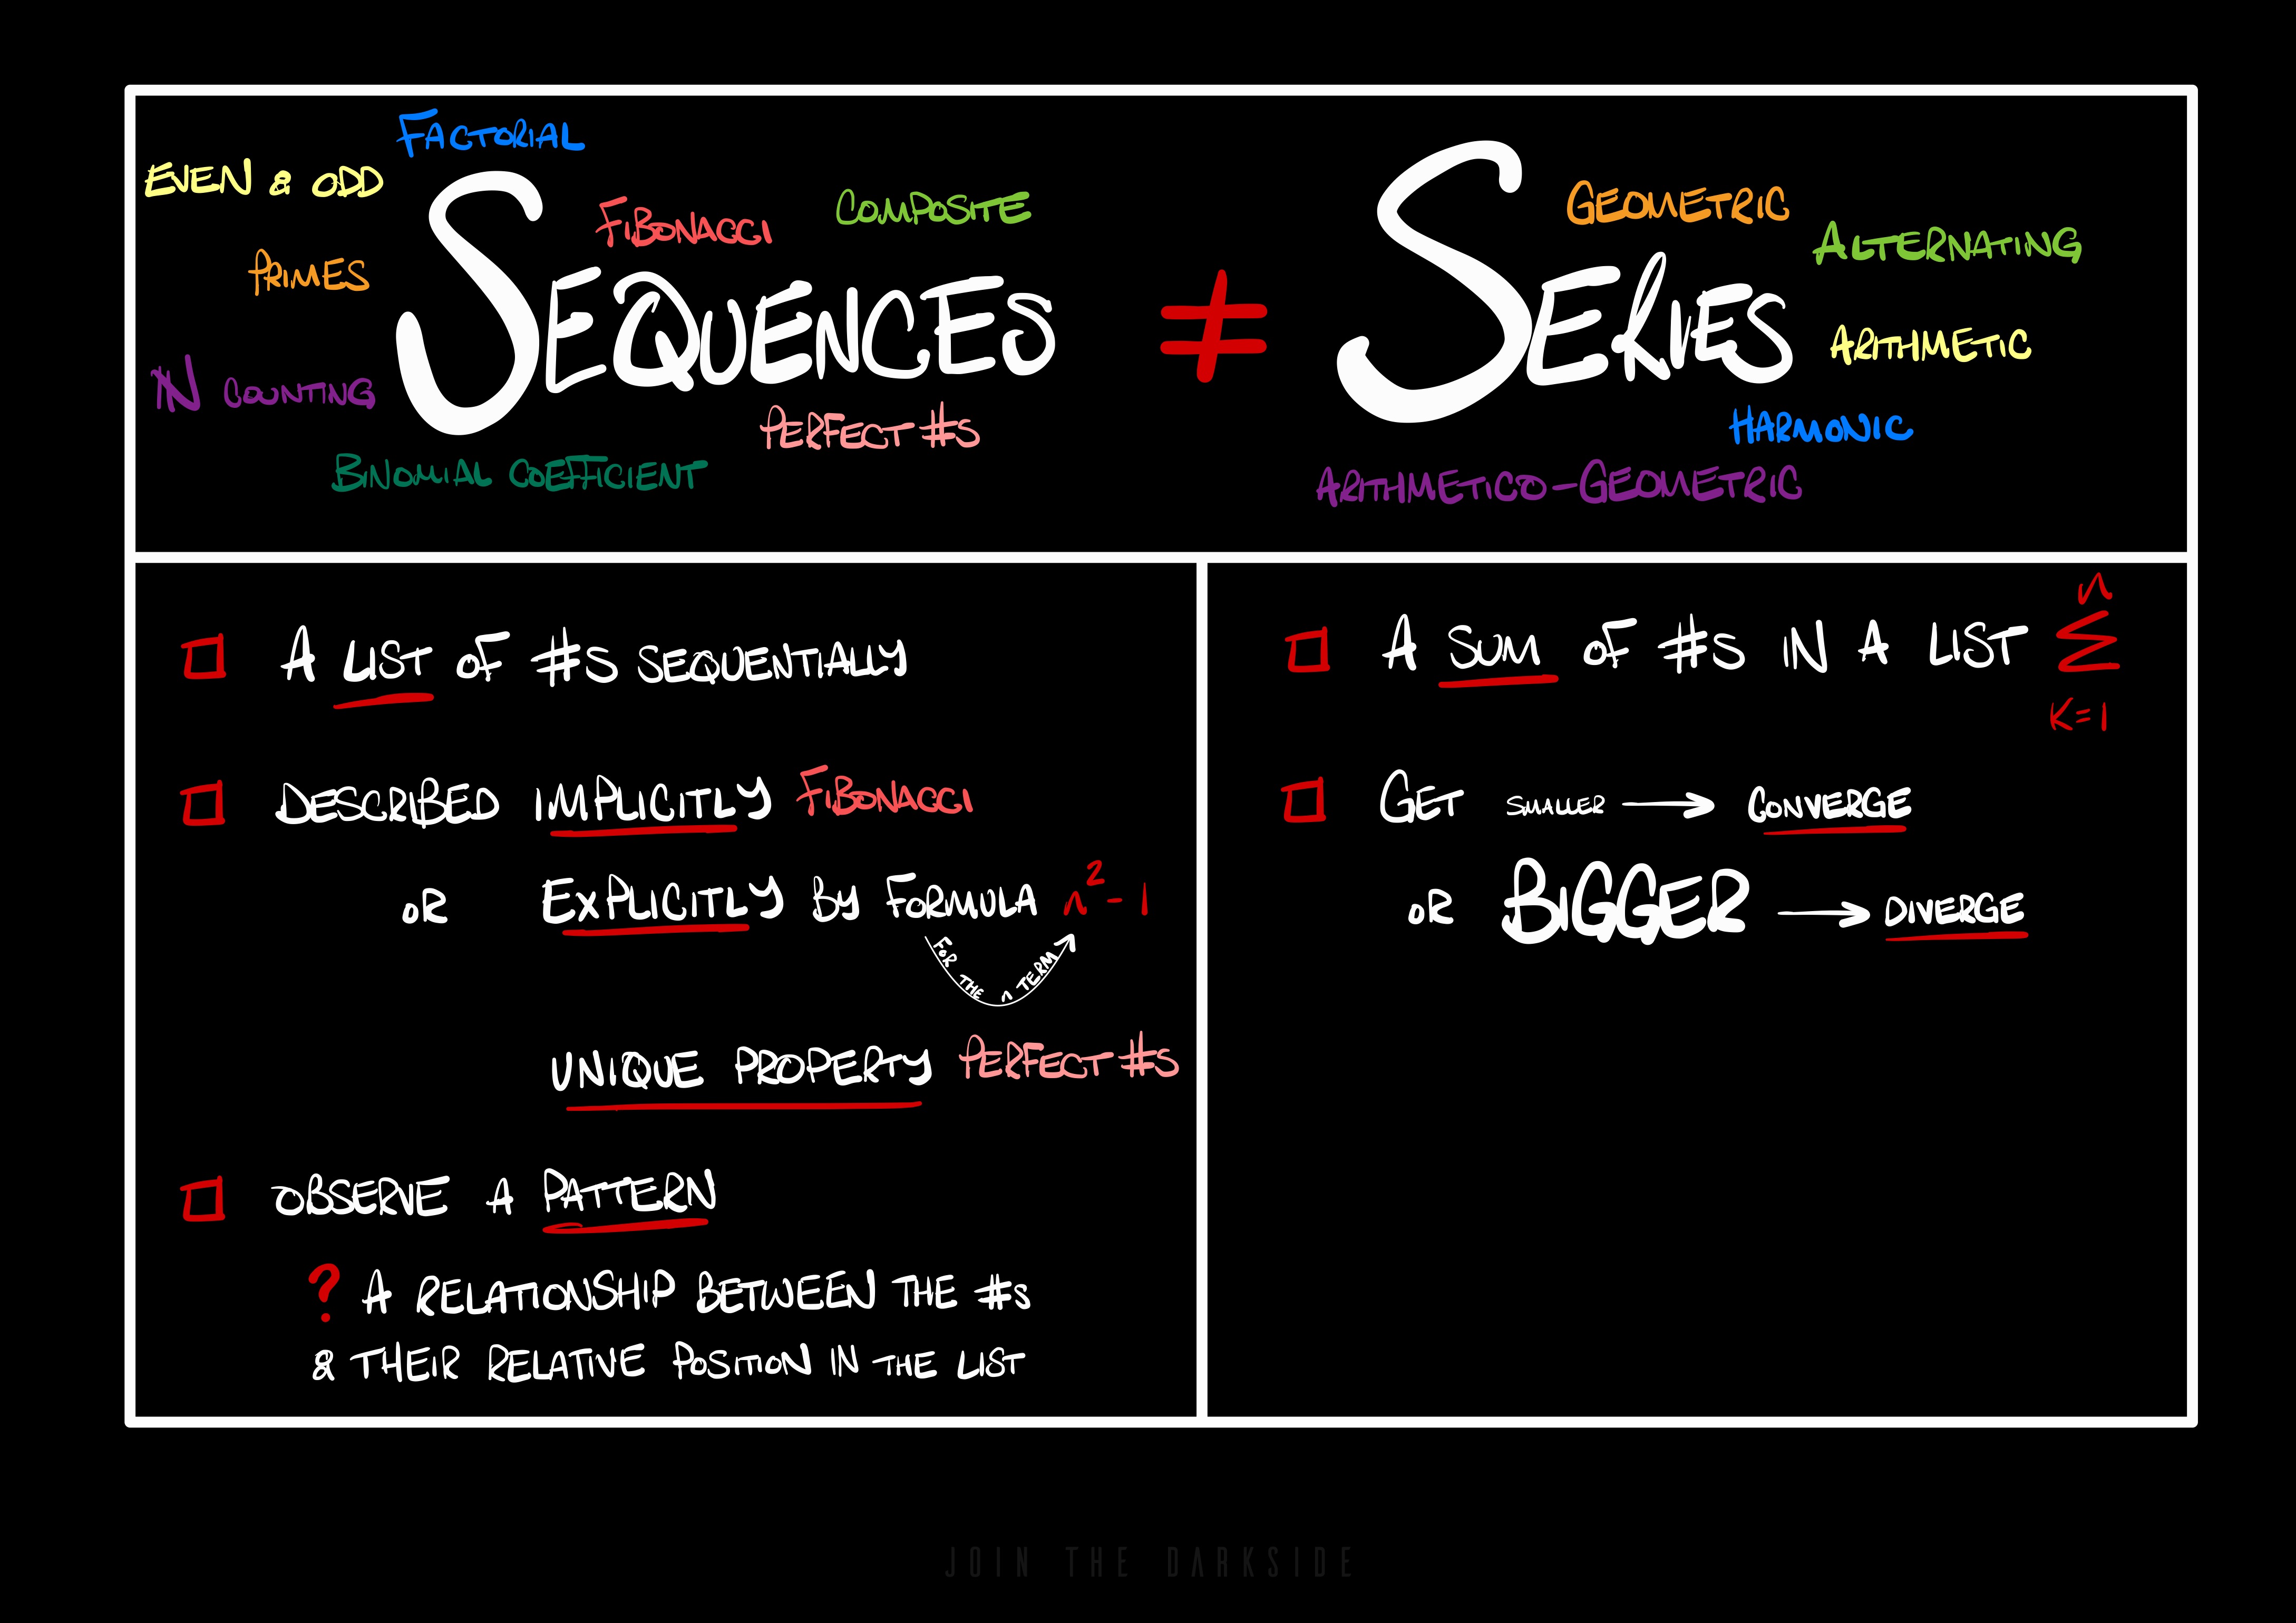 FACTORIAL
EVEN & ODD
FIBONACCI
COMPOSITE
PRIMES
SEQUENCES
ℕ COUNTING
PERFECT #S
BINOMIAL COEFFICIENT
≠
GEOMETRIC
ALTERNATING
SERIES
ARITHMETIC
HARMONIC
ARITHMETICO-GEOMETRIC
A LIST OF #S SEQUENTIALLY
DESCRIBED IMPLICITLY FIBONACCI
OR EXPLICITLY BY FORMULA n² - 1
FOR THE n TERM
UNIQUE PROPERTY PERFECT #S
OBSERVE A PATTERN
? A RELATIONSHIP BETWEEN THE #S
& THEIR RELATIVE POSITION IN THE LIST
A SUM OF #S IN A LIST n ∑ K=1
GET SMALLER → CONVERGE
OR BIGGER → DIVERGE
JOIN THE DARKSIDE